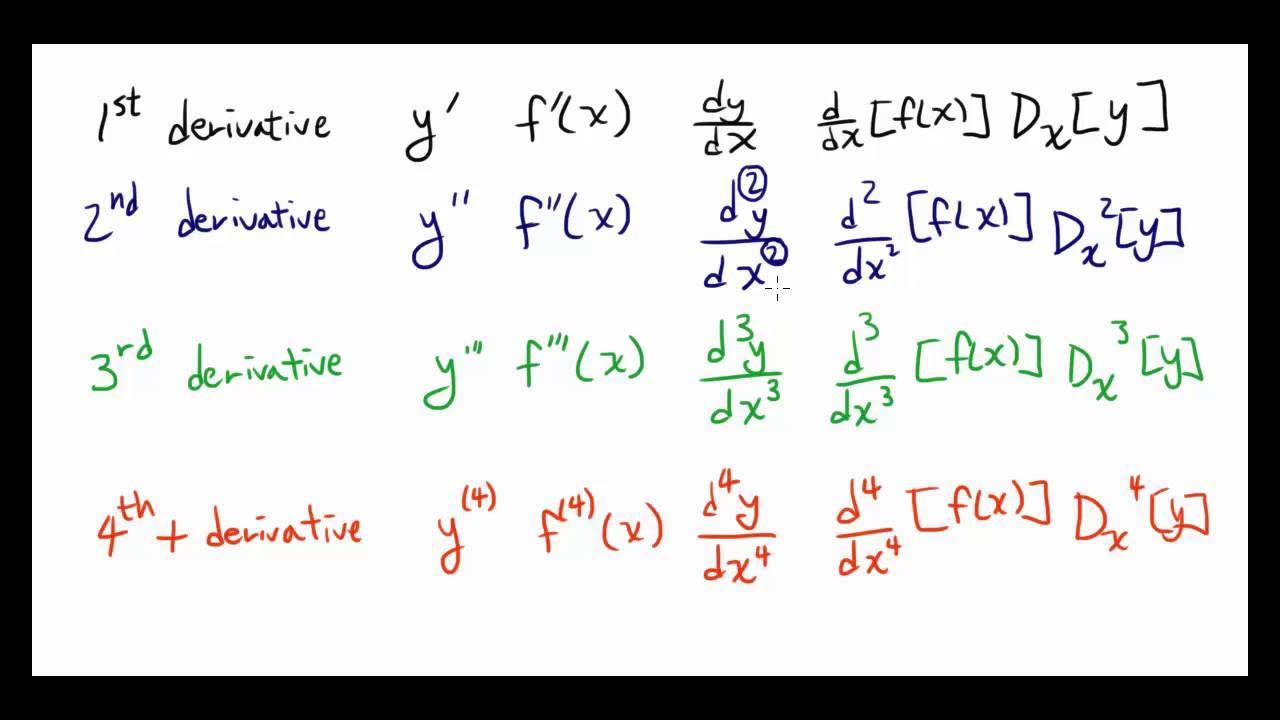 1st derivative y' f'(x) dy/dx d/dx [f(x)] Dx[y]
2nd derivative y'' f''(x) d²y/dx² d²/dx² [f(x)] Dx²[y]
3rd derivative y''' f'''(x) d³y/dx³ d³/dx³ [f(x)] Dx³[y]
4th + derivative y⁽⁴⁾ f⁽⁴⁾(x) d⁴y/dx⁴ d⁴/dx⁴ [f(x)] Dx⁴[y]